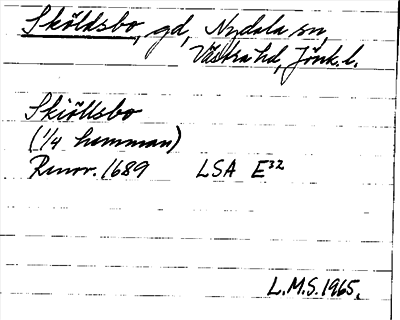 Sköldsbo, gd, Nydala sn,
Västra hd, Jönk. l.
Skiöllsbo
(1/4 hemman)
Renov. 1689 LSA E³²
L.M.S. 1965.